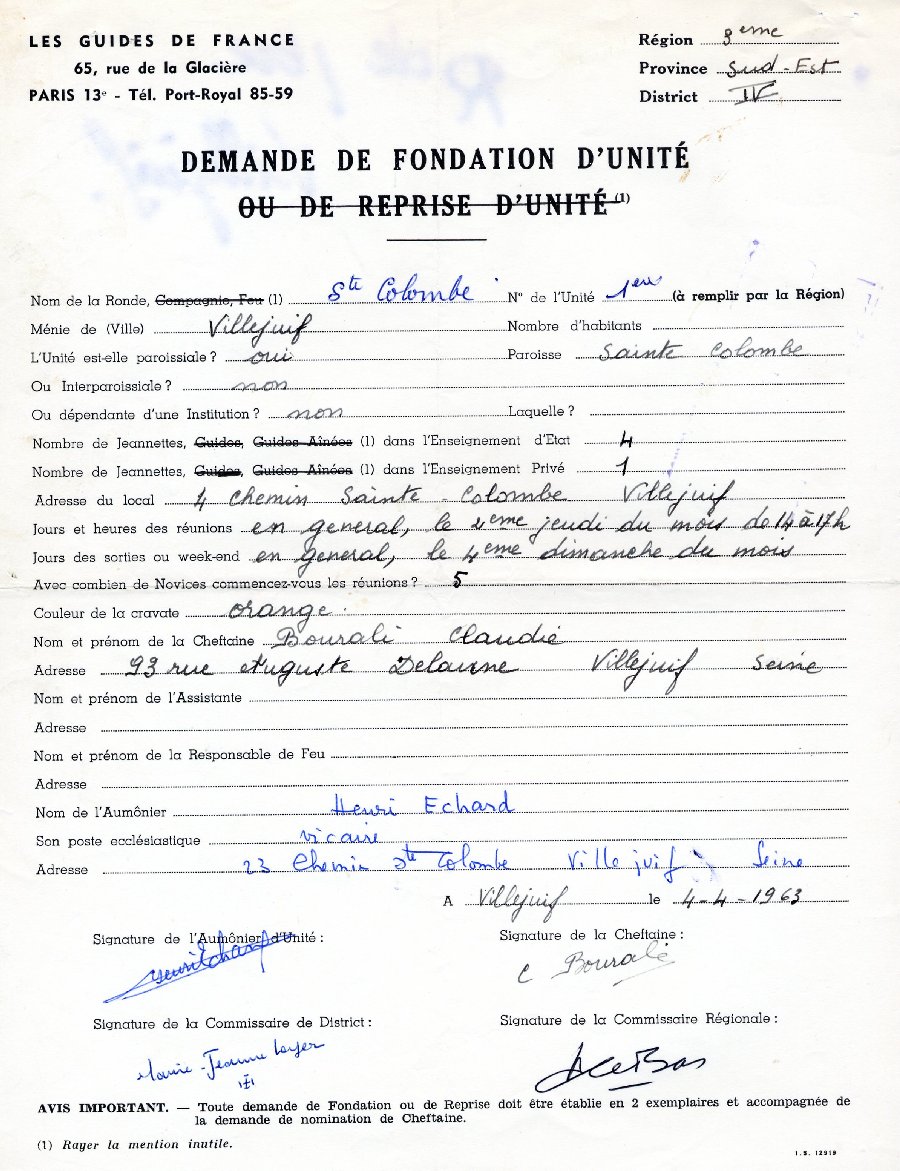 LES GUIDES DE FRANCE
65, rue de la Glacière
PARIS 13e - Tél. Port-Royal 85-59
Région 8eme
Province Sud-Est
District IV
DEMANDE DE FONDATION D'UNITÉ
OU DE REPRISE D'UNITÉ (1)
Nom de la Ronde, Compagnie, Feu (1) Ste Colombe N° de l'Unité 1ere (à remplir par la Région)
Ménie de (Ville) Villejuif Nombre d'habitants
L'Unité est-elle paroissiale ? oui Paroisse Sainte Colombe
Ou Interparoissiale ? non
Ou dépendante d'une Institution ? non Laquelle ?
Nombre de Jeannettes, Guides, Guides Aînées (1) dans l'Enseignement d'Etat 4
Nombre de Jeannettes, Guides, Guides Aînées (1) dans l'Enseignement Privé 1
Adresse du local 4 chemin Sainte-Colombe Villejuif
Jours et heures des réunions en general, le 2eme jeudi du mois de 14 à 17h
Jours des sorties ou week-end en general, le 4eme dimanche du mois
Avec combien de Novices commencez-vous les réunions ? 5
Couleur de la cravate orange.
Nom et prénom de la Cheftaine Bourali Claudie
Adresse 93 rue Auguste Delaune Villejuif Seine
Nom et prénom de l'Assistante
Adresse
Nom et prénom de la Responsable de Feu
Adresse
Nom de l'Aumônier Henri Echard
Son poste ecclésiastique vicaire
Adresse 23 Chemin Ste Colombe Villejuif Seine
A Villejuif le 4-4-1963
Signature de l'Aumônier d'Unité :
Signature de la Cheftaine :
C Bourali
Signature de la Commissaire de District :
Signature de la Commissaire Régionale :
Marie-Jeanne
AVIS IMPORTANT. — Toute demande de Fondation ou de Reprise doit être établie en 2 exemplaires et accompagnée de
la demande de nomination de Cheftaine.
(1) Rayer la mention inutile.
I.S. 12919